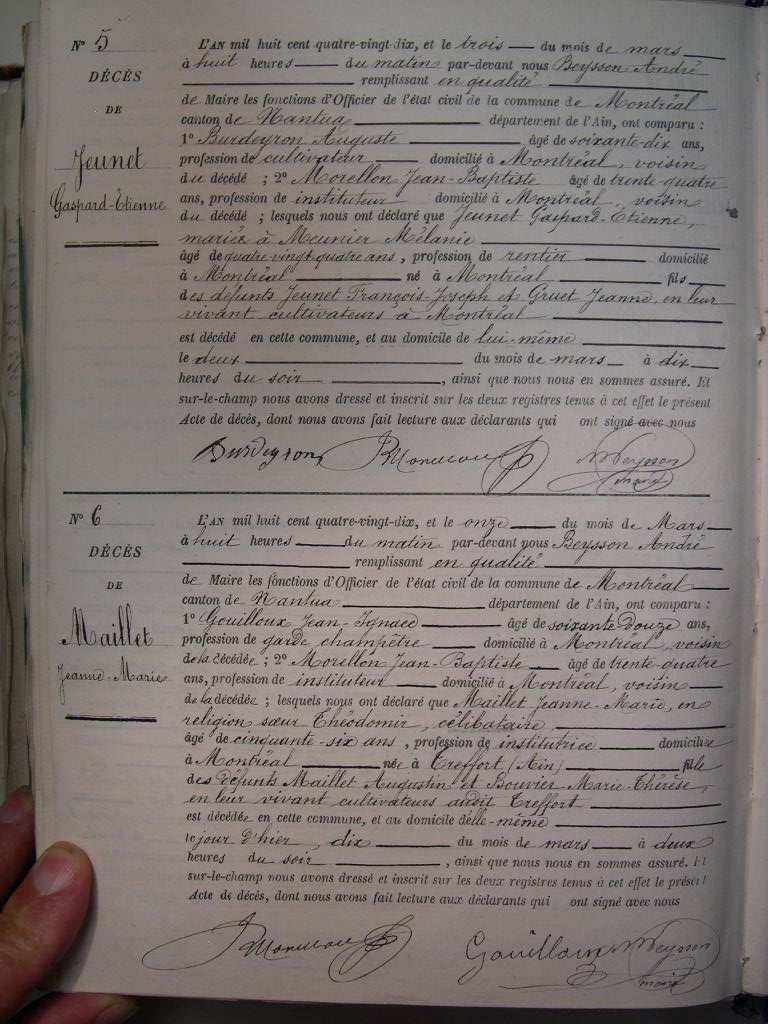 N° 5
DÉCÈS
DE
Jeunet
Gaspard-Étienne
L'AN mil huit cent quatre-vingt-dix, et le trois du mois de mars
à huit heures du matin par-devant nous Beysson André
remplissant en qualité
de Maire les fonctions d'Officier de l'état civil de la commune de Montréal
canton de Nantua département de l'Ain, ont comparu :
1° Burdeyron Auguste âgé de soixante-dix ans,
profession de cultivateur domicilié à Montréal, voisin
du décédé ; 2° Morellon Jean-Baptiste âgé de trente-quatre
ans, profession de instituteur domicilié à Montréal, voisin
du décédé ; lesquels nous ont déclaré que Jeunet Gaspard-Etienne,
marié à Meunier Mélanie
âgé de quatre-vingt-quatre ans, profession de rentier domicilié
à Montréal né à Montréal fils
des défunts Jeunet François-Joseph et Gruet Jeanne, en leur
vivant cultivateurs à Montréal
est décédé en cette commune, et au domicile de lui-même
le deux du mois de mars à dix
heures du soir, ainsi que nous nous en sommes assuré. Et
sur-le-champ nous avons dressé et inscrit sur les deux registres tenus à cet effet le présent
Acte de décès, dont nous avons fait lecture aux déclarants qui ont signé avec nous
Burdeyron Beysson
maire
N° 6
DÉCÈS
DE
Maillet
Jeanne-Marie
L'AN mil huit cent quatre-vingt-dix, et le onze du mois de Mars
à huit heures du matin par-devant nous Beysson André
remplissant en qualité
de Maire les fonctions d'Officier de l'état civil de la commune de Montréal
canton de Nantua département de l'Ain, ont comparu :
1° Gouilloux Jean-Ignace âgé de soixante douze ans,
profession de garde champêtre domicilié à Montréal, voisin
de la décédée ; 2° Morellon Jean-Baptiste âgé de trente-quatre
ans, profession de instituteur domicilié à Montréal, voisin
de la décédée ; lesquels nous ont déclaré que Maillet Jeanne-Marie, en
religion sœur Théodomir, célibataire
âgé de cinquante-six ans, profession de institutrice domiciliée
à Montréal née à Treffort (Ain) fille
des défunts Maillet Augustin et Bouvier Marie-Thérèse,
en leur vivant cultivateurs audit Treffort
est décédée en cette commune, et au domicile d'elle-même
le jour d'hier, dix du mois de mars à deux
heures du soir, ainsi que nous nous en sommes assuré. Et
sur-le-champ nous avons dressé et inscrit sur les deux registres tenus à cet effet le présent
Acte de décès, dont nous avons fait lecture aux déclarants qui ont signé avec nous
Beysson
maire